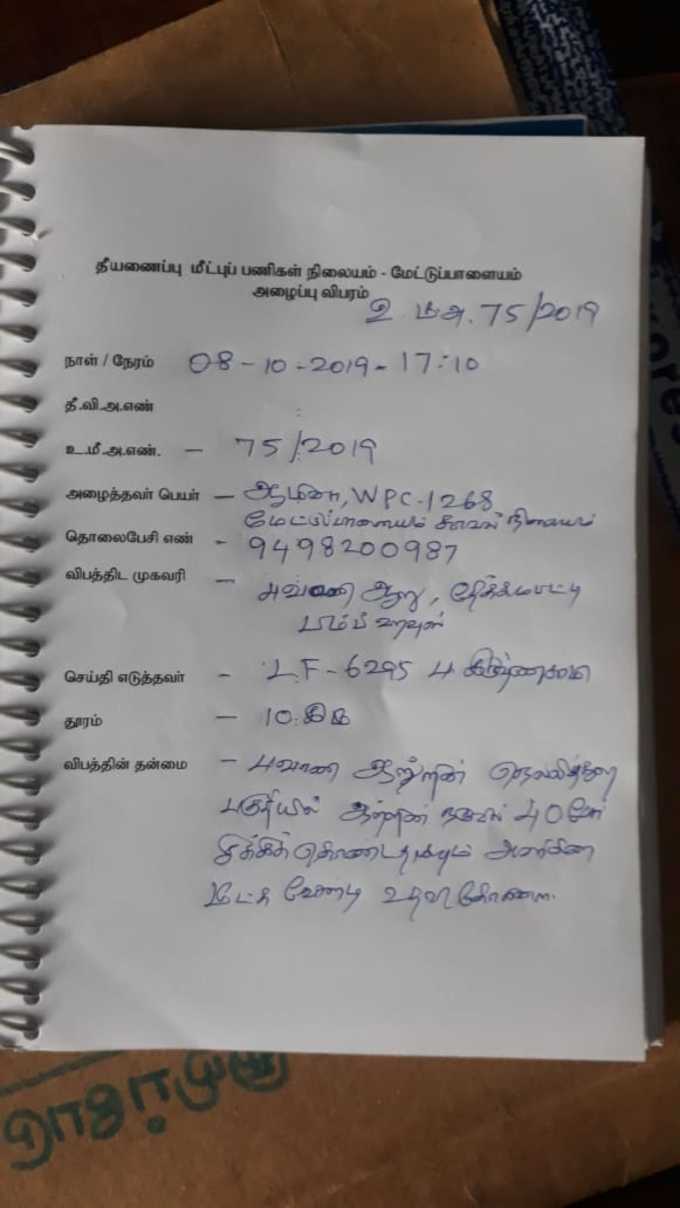 தீயணைப்பு மீட்புப் பணிகள் நிலையம் - மேட்டுப்பாளையம்
அழைப்பு விபரம்
உ மீ.அ. 75/2019
நாள் / நேரம் 08-10-2019- 17:10
தீ.வி.அ.எண்
உ.மீ.அ.எண். - 75/2019
அழைத்தவர் பெயர் - ஆமினா, WPC-1268
மேட்டுப்பாளையம் காவல் நிலையம்
தொலைபேசி எண் - 9498200987
விபத்திட முகவரி - பவானி ஆறு,
பம்ப் ஹவுஸ்
செய்தி எடுத்தவர் - LF-6295
தூரம் - 10.கி.மீ
விபத்தின் தன்மை - பவானி ஆற்றின் நெல்லித்துறை
பகுதியில் ஆற்றின் நடுவில் 40 பேர்
சிக்கிக் கொண்டதாகவும் அவர்களை
மீட்க வேண்டி உதவி கோரினர்.